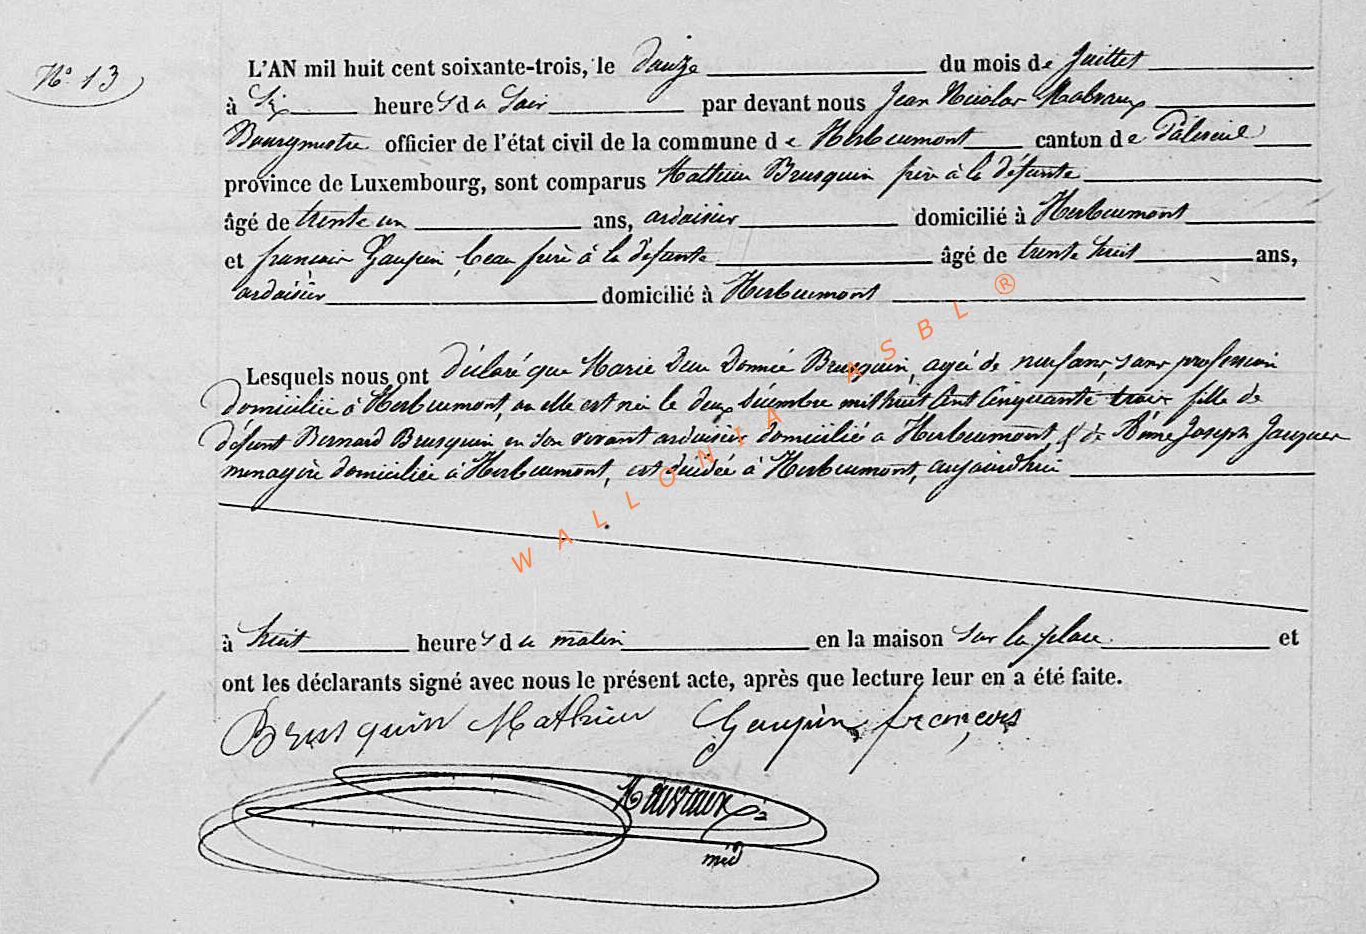 N° 13
L'AN mil huit cent soixante-trois, le douze du mois de Juillet
à Six heures du Soir par devant nous Jean Nicolas Mabvaux
Bourgmestre officier de l'état civil de la commune de Herbeumont canton de Paliseul
province de Luxembourg, sont comparus Mathieu Brusquin frère à la défunte
âgé de trente un ans, ardoisier domicilié à Herbeumont
et françois Gaupin beau frère à la défunte âgé de trente huit ans,
ardoisier domicilié à Herbeumont
Lesquels nous ont déclaré que Marie Dieu Donnée Brusquin, agée de neuf ans, sans profession
domiciliée à Herbeumont, où elle est née le deux décembre mil huit Cent Cinquante trois fille de
défunt Bernard Brusquin en son vivant ardoisier domicilié à Herbeumont, & de Aime Joseph Jacques
menagère domiciliée à Herbeumont, est décédée à Herbeumont, aujourd'hui
WALLONIA ASBL ®
à huit heures du matin en la maison sur la place et
ont les déclarants signé avec nous le présent acte, après que lecture leur en a été faite.
Brusquin Mathieu Gaupin françois